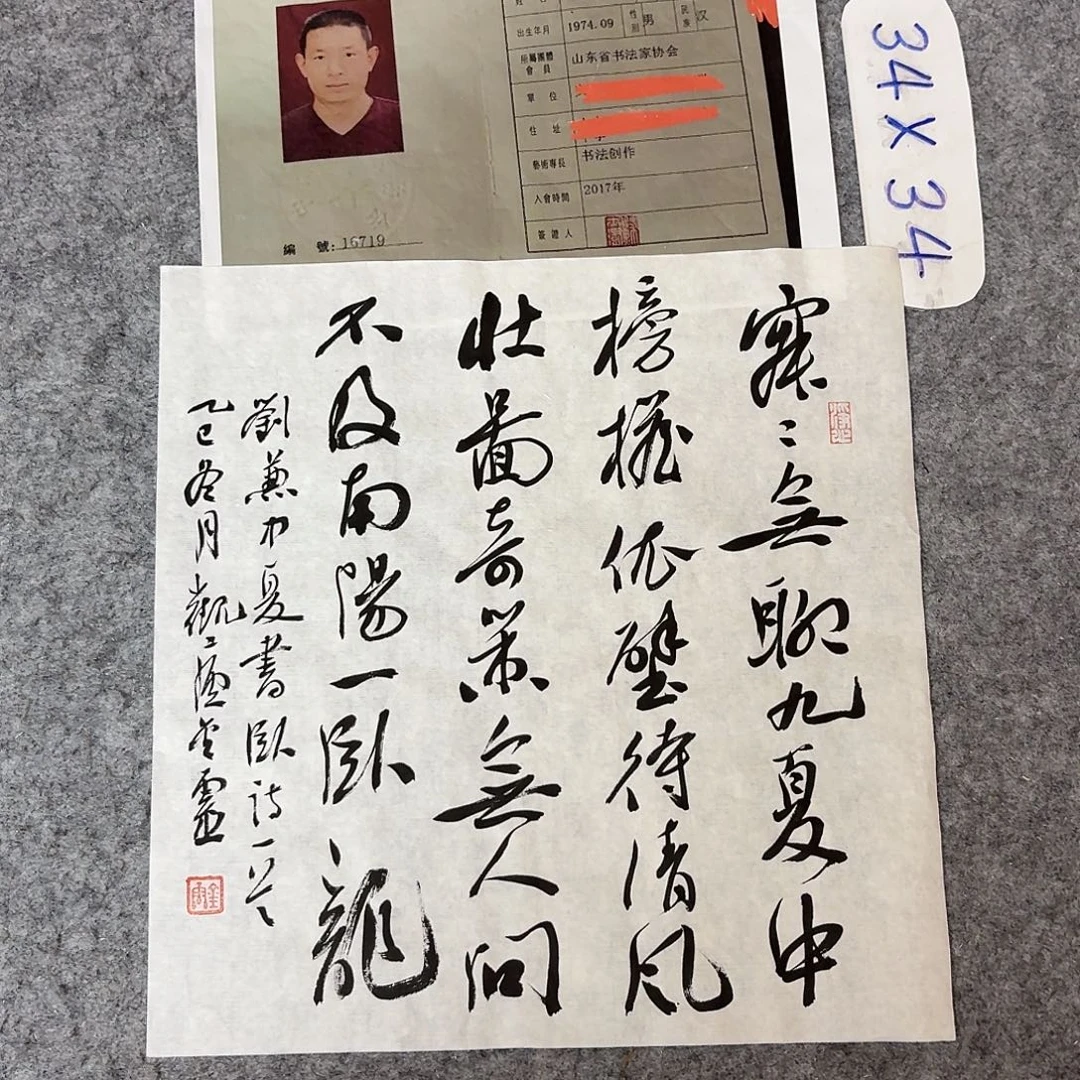 出生年月 1974.09 性别 男 民族 汉
所屬團體會員 山东省书法家协会
單位
住址
藝術專長 书法创作
入會時間 2017年
簽證人
編號:16719
34×34
寂〻無聊九夏中
榜檐依壁待清风
壮圖奇策無人問
不及南陽一臥龍
劉兼中夏書臥詩一首
乙巳冬月觀〻